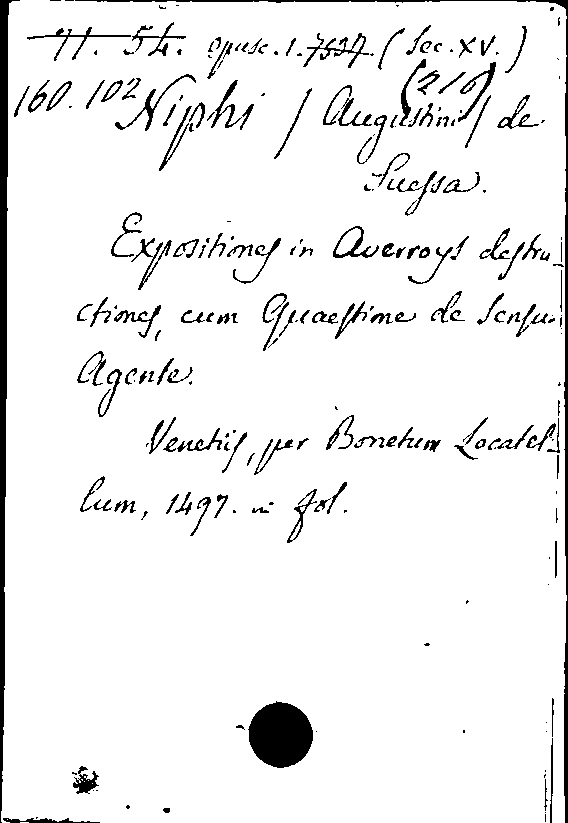 71. 54. opusc. 1. 7537. (Sec. XV.)
160. 102 (210)
Niphi / Augustini / de
Suessa.
Expositiones in Averroys destru-
ctiones, cum Quaestione de Sensu
Agente.
Venetiis, per Bonetum Locatel-
lum, 1497. in fol.